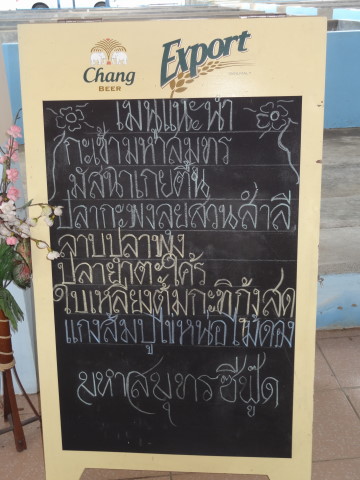 Chang
BEER
Export
เมนูแนะนำ
กะเช้ามหาสมุทร
มัสมั่นไก่
ปลากะพงลุยสวนสาลี่
ลาบปลาทูง
ปลายำตะไคร้
ใบเหลียงต้มกะทิกุ้งสด
แกงส้มปูไข่หน่อไม้ดอง
มหาสมุทรซีฟู้ด